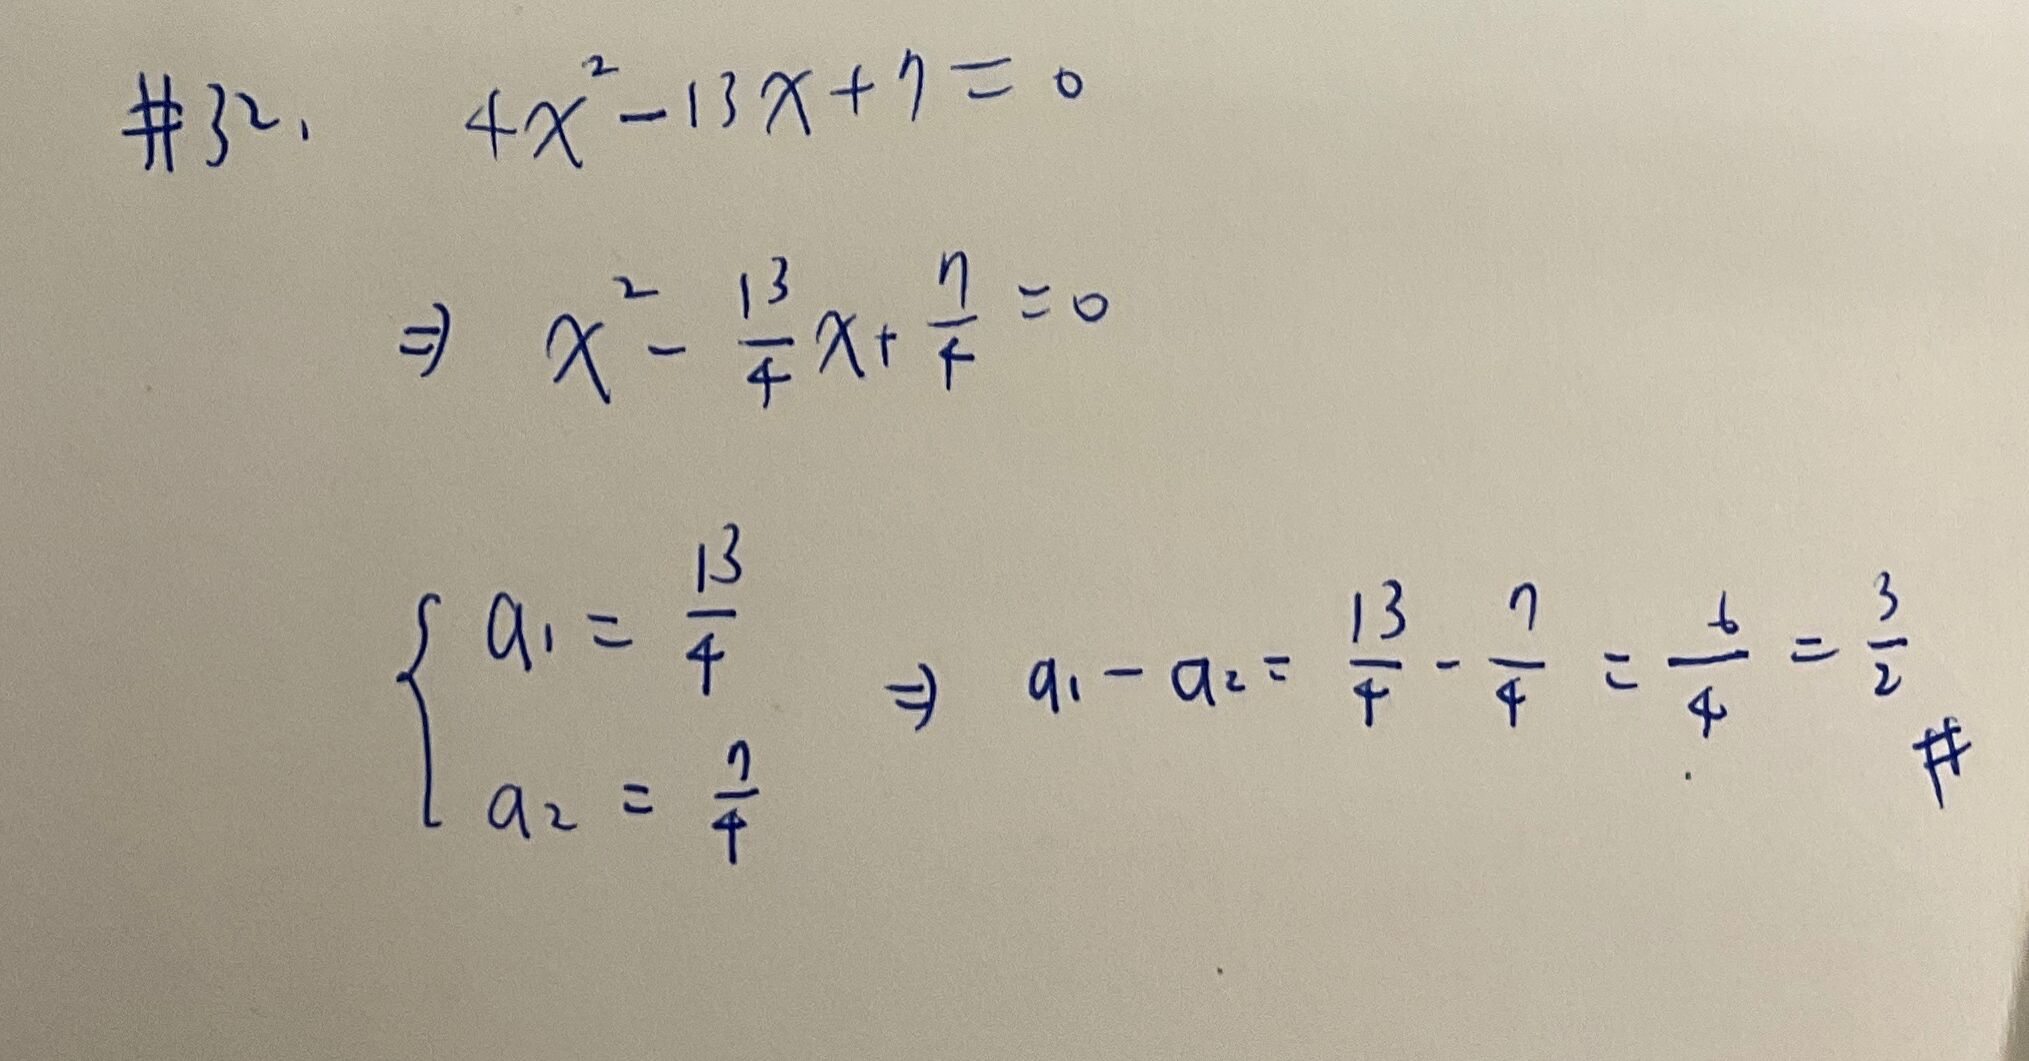 #32. 4x² - 13x + 7 = 0
⇒ x² - 13/4 x + 7/4 = 0
{ a₁ = 13/4
a₂ = 7/4
⇒ a₁ - a₂ = 13/4 - 7/4 = 6/4 = 3/2 #